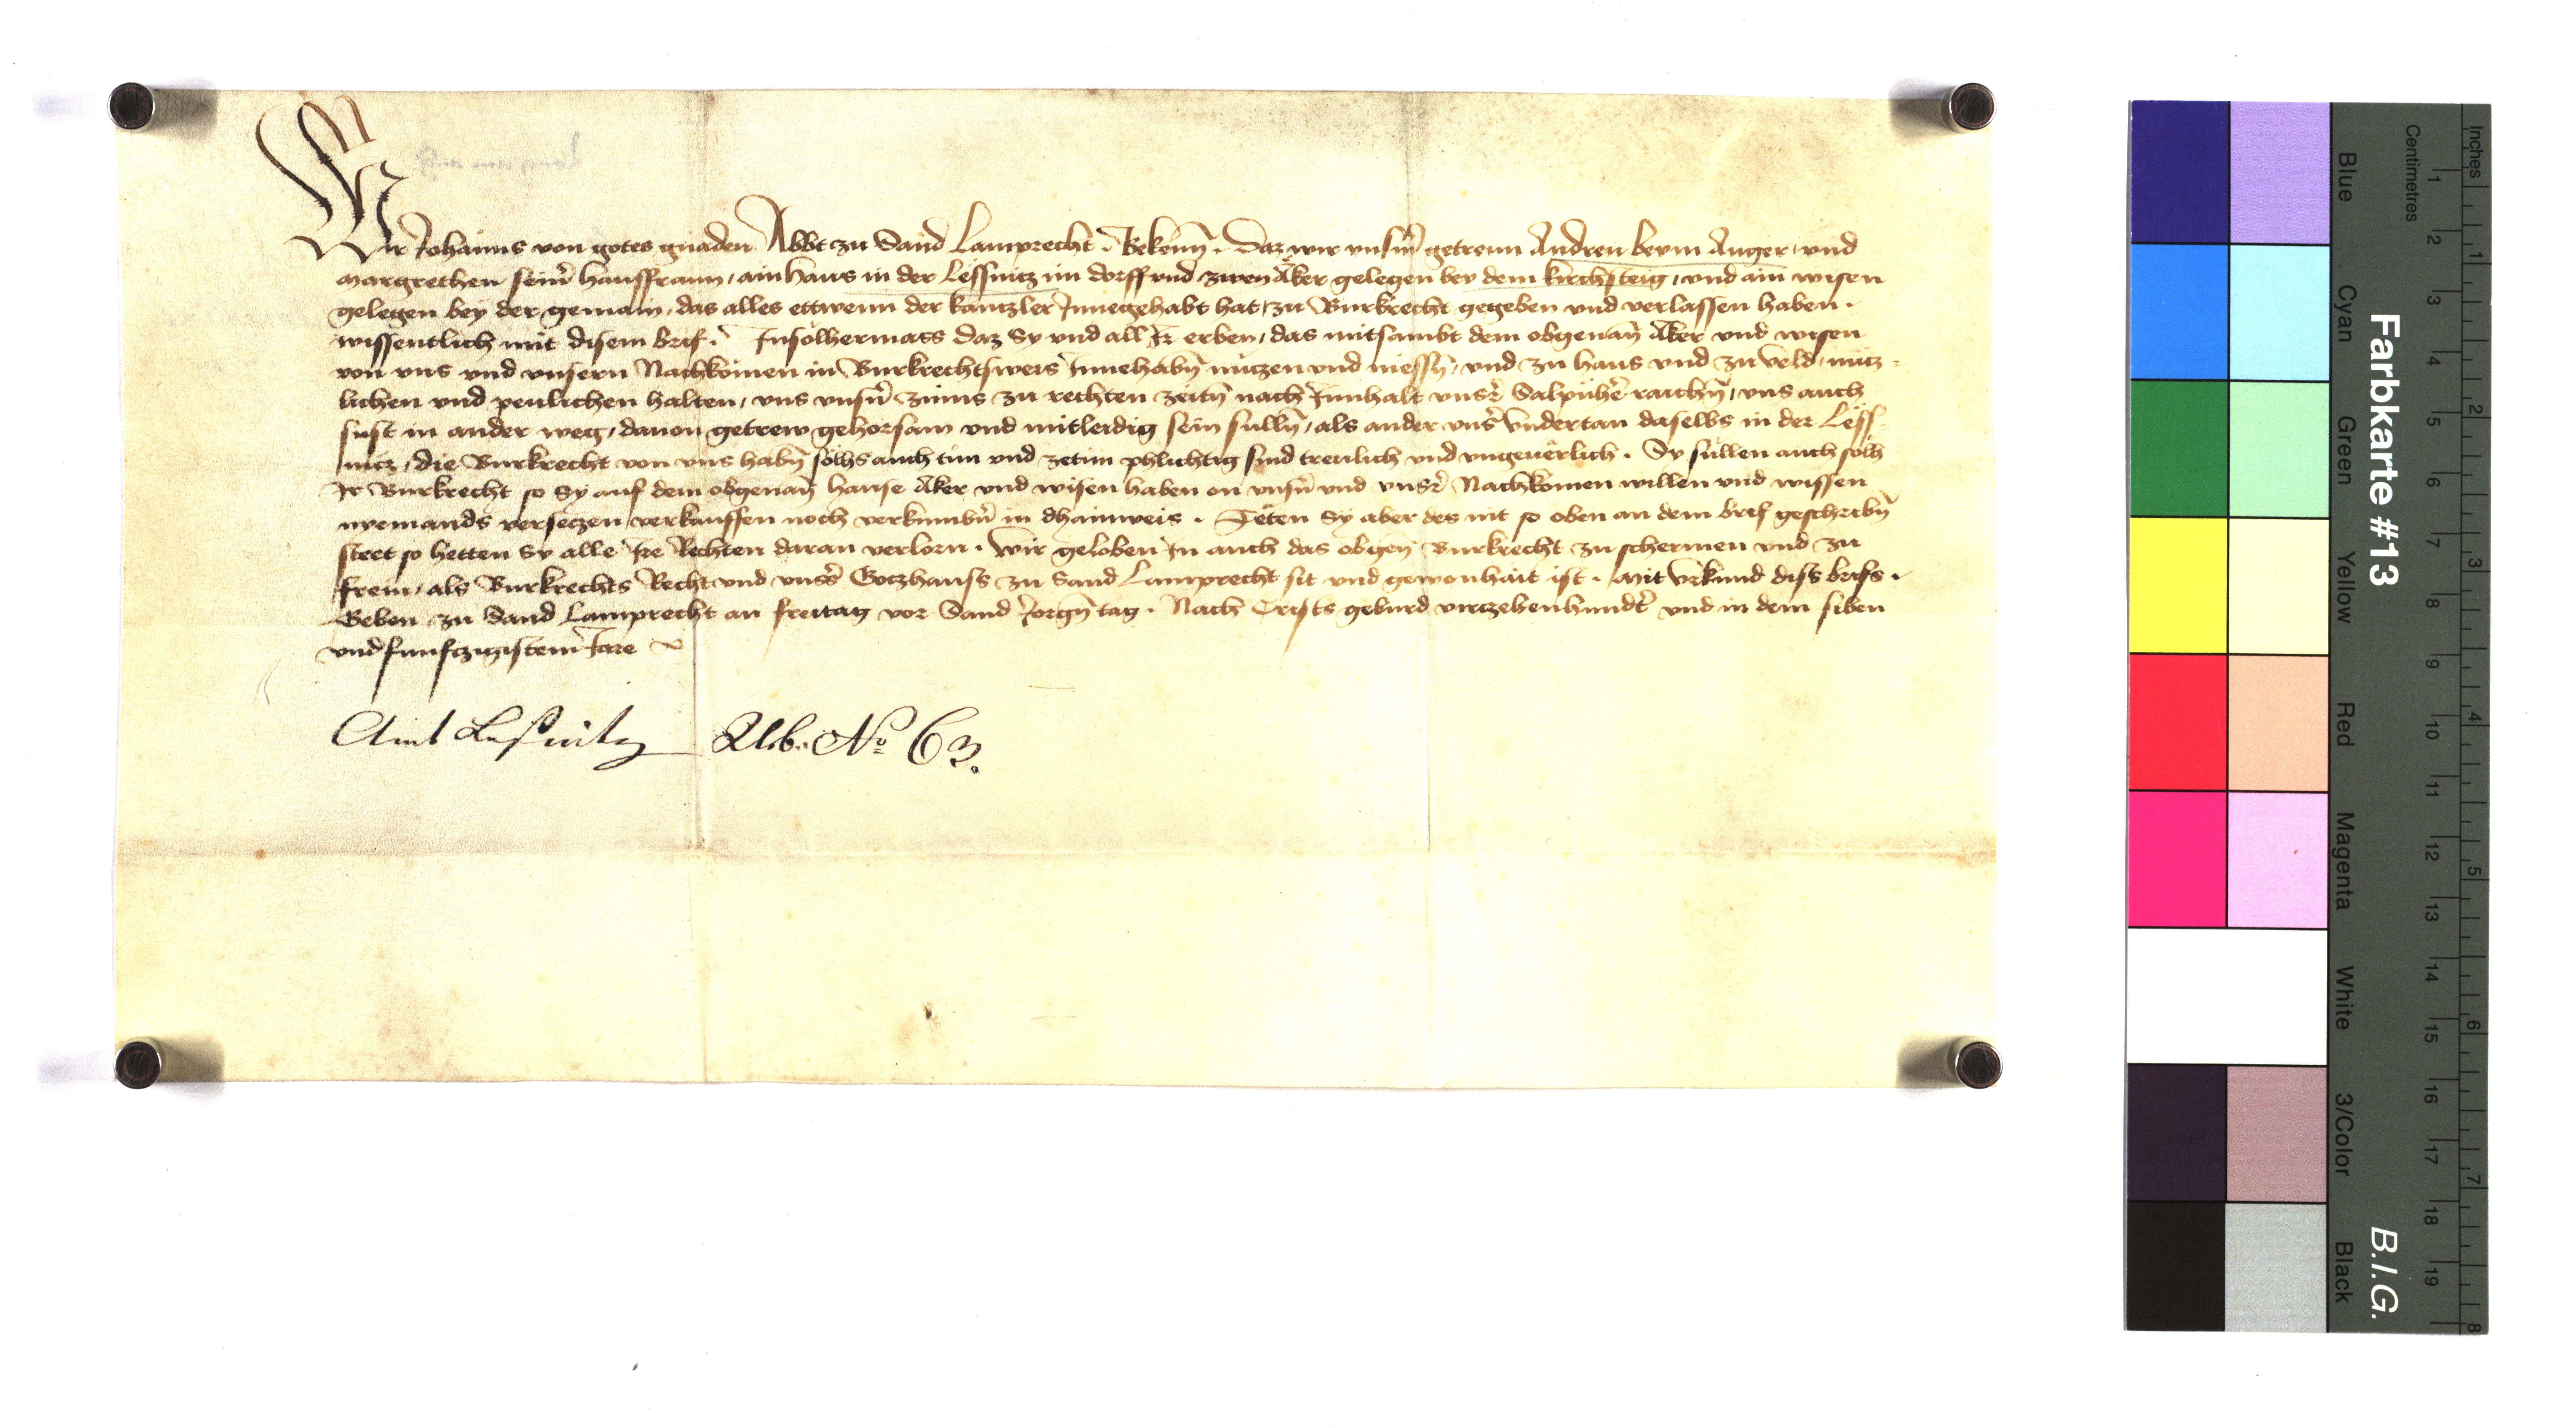 Wir Johanns von gotes gnaden Abbt zu Sand Lamprecht. Bekenn̄. Daz wir vnsm̄ getrewn Andren beym Anger, vnd
margrethen seinr̄ hausfraun, ain haus in der Lessnitz im dorff vnd zwen Äker gelegen bey dem kirchsteig, vnd ain wisen
gelegen bey der gemain, das alles ettwenn der kantzler Innegehabt hat, zu Burkrecht gegeben vnd verlassen haben.
wissentlich mit disem brif. Insolhermass daz Sy vnd all Ir erben, das mitsambt dem obgenan̄ Äker vnd wisen
von vns vnd vnsern Nachkomen in Burkrechtsweis Innehabn̄ nutzen vnd niessn̄, vnd zu haus vnd zu veld, nutz=
lichen vnd peulichen halten, vns vnsn̄ zinns zu rechten zeitn̄ nach Innhalt vnsr̄ Salpüher raichn̄, vns auch
sust in ander weg, dauon getrew gehorsam vnd mitleidig sein sulln̄, als ander vnsr̄ vndertan daselbs in der Less=
nitz, die Burkrecht von vns habn̄ solhs auch tun vnd zetun phlichtig sind treulich vnd vngeuerlich. Sy sullen auch solh
Ir Burkrecht so Sy auf dem obgenan̄ hause Äker vnd wisen haben on vnsn̄ vnd vnsr̄ Nachkomen willen vnd wissen
nyemands versetzen verkauffen noch verkumbn̄ in dhainweis. Teten Sy aber des nit so oben an dem brif geschribn̄
steet so hetten Sy alle Ire Rechten daran verlorn. Wir geloben In auch das obgen̄ Burkrecht zu schermen vnd zu
frein, als Burkrechts Recht vnd vnsr̄s Gotzhauss zu Sand Lamprecht sit vnd gewonhait ist. Mit vrkund diss brifs.
Geben zu Sand Lamprecht an freitag vor Sand Jorgn̄ tag. Nach Crists geburd virczehenhundt̄ vnd in dem siben
vnd funfczigistem Jare
Amt Laßnitz Urb. No 63.
Farbkarte #13 B.I.G.
Inches 1 2 3 4 5 6 7 8
Centimetres 1 2 3 4 5 6 7 8 9 10 11 12 13 14 15 16 17 18 19
Blue Cyan Green Yellow Red Magenta White 3/Color Black